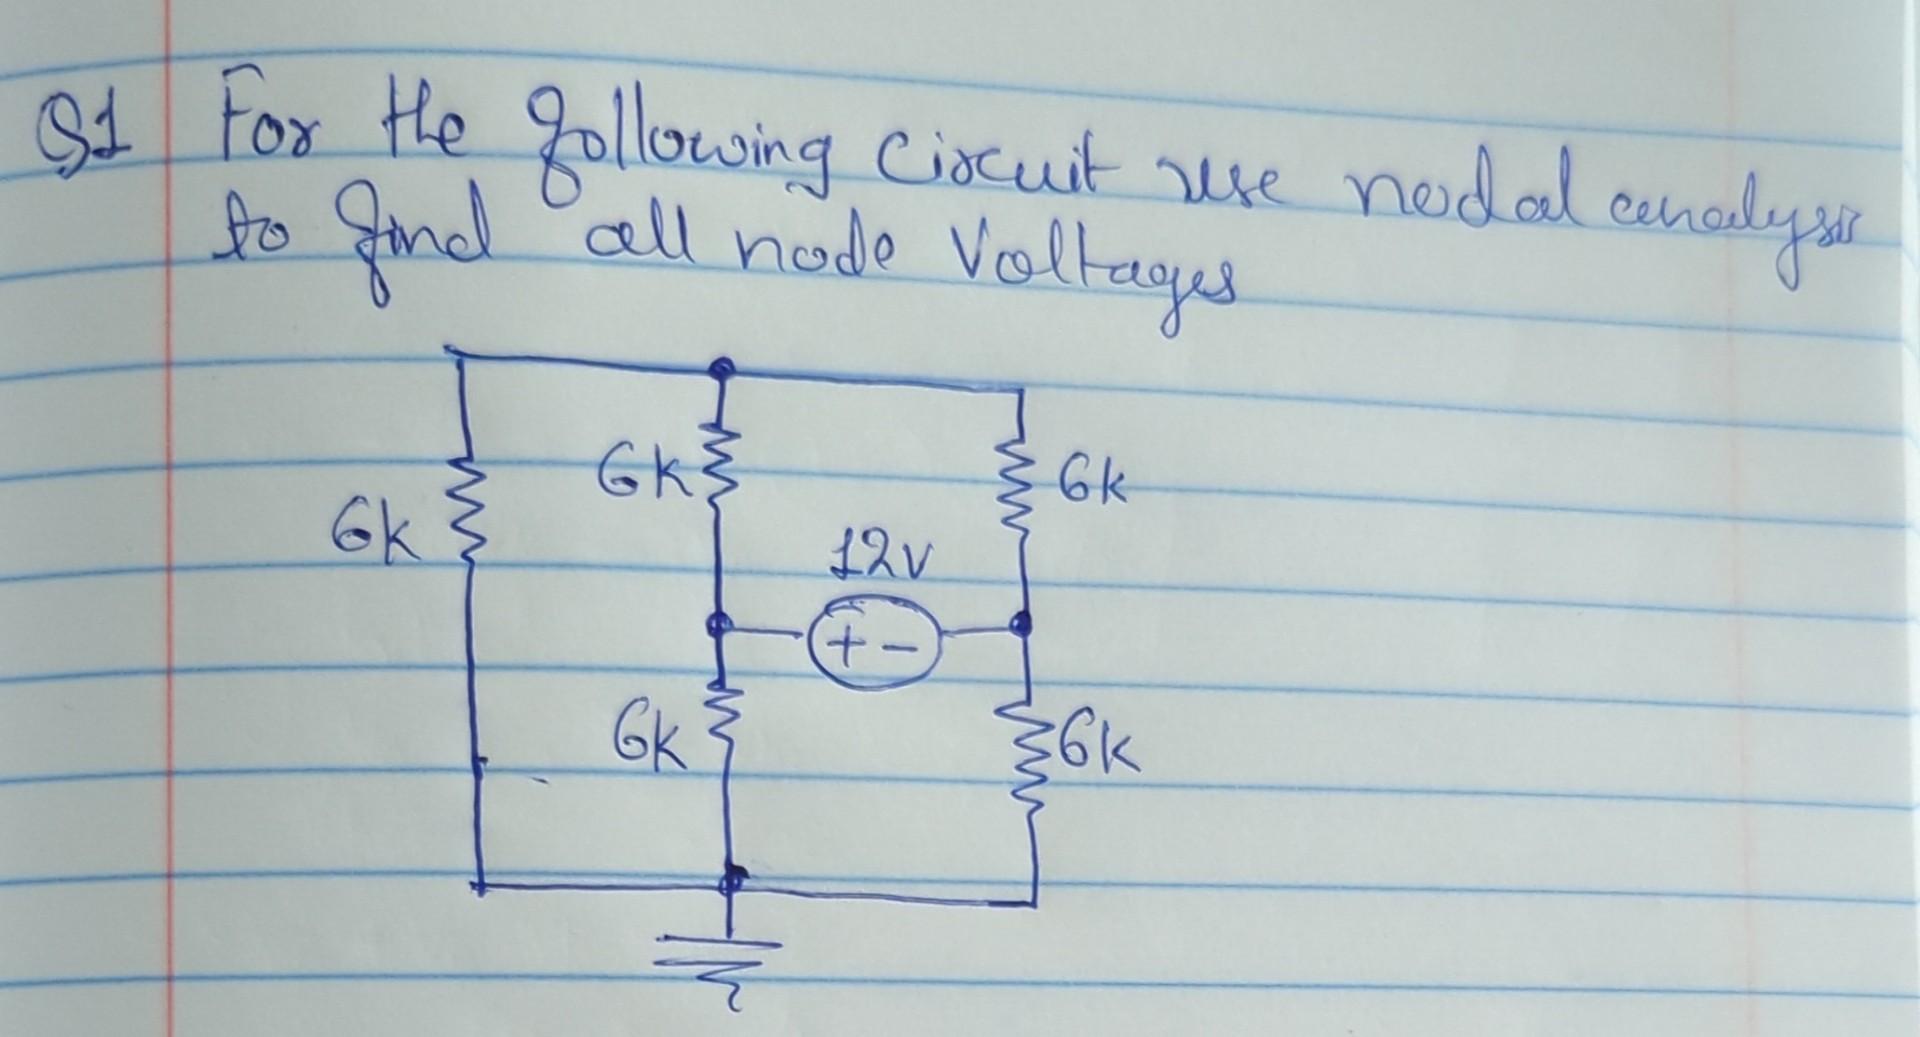 Q1 For the following circuit use nodal analysis
to find all node Voltages
6k
6k
6k
12v
+ -
6k
6k